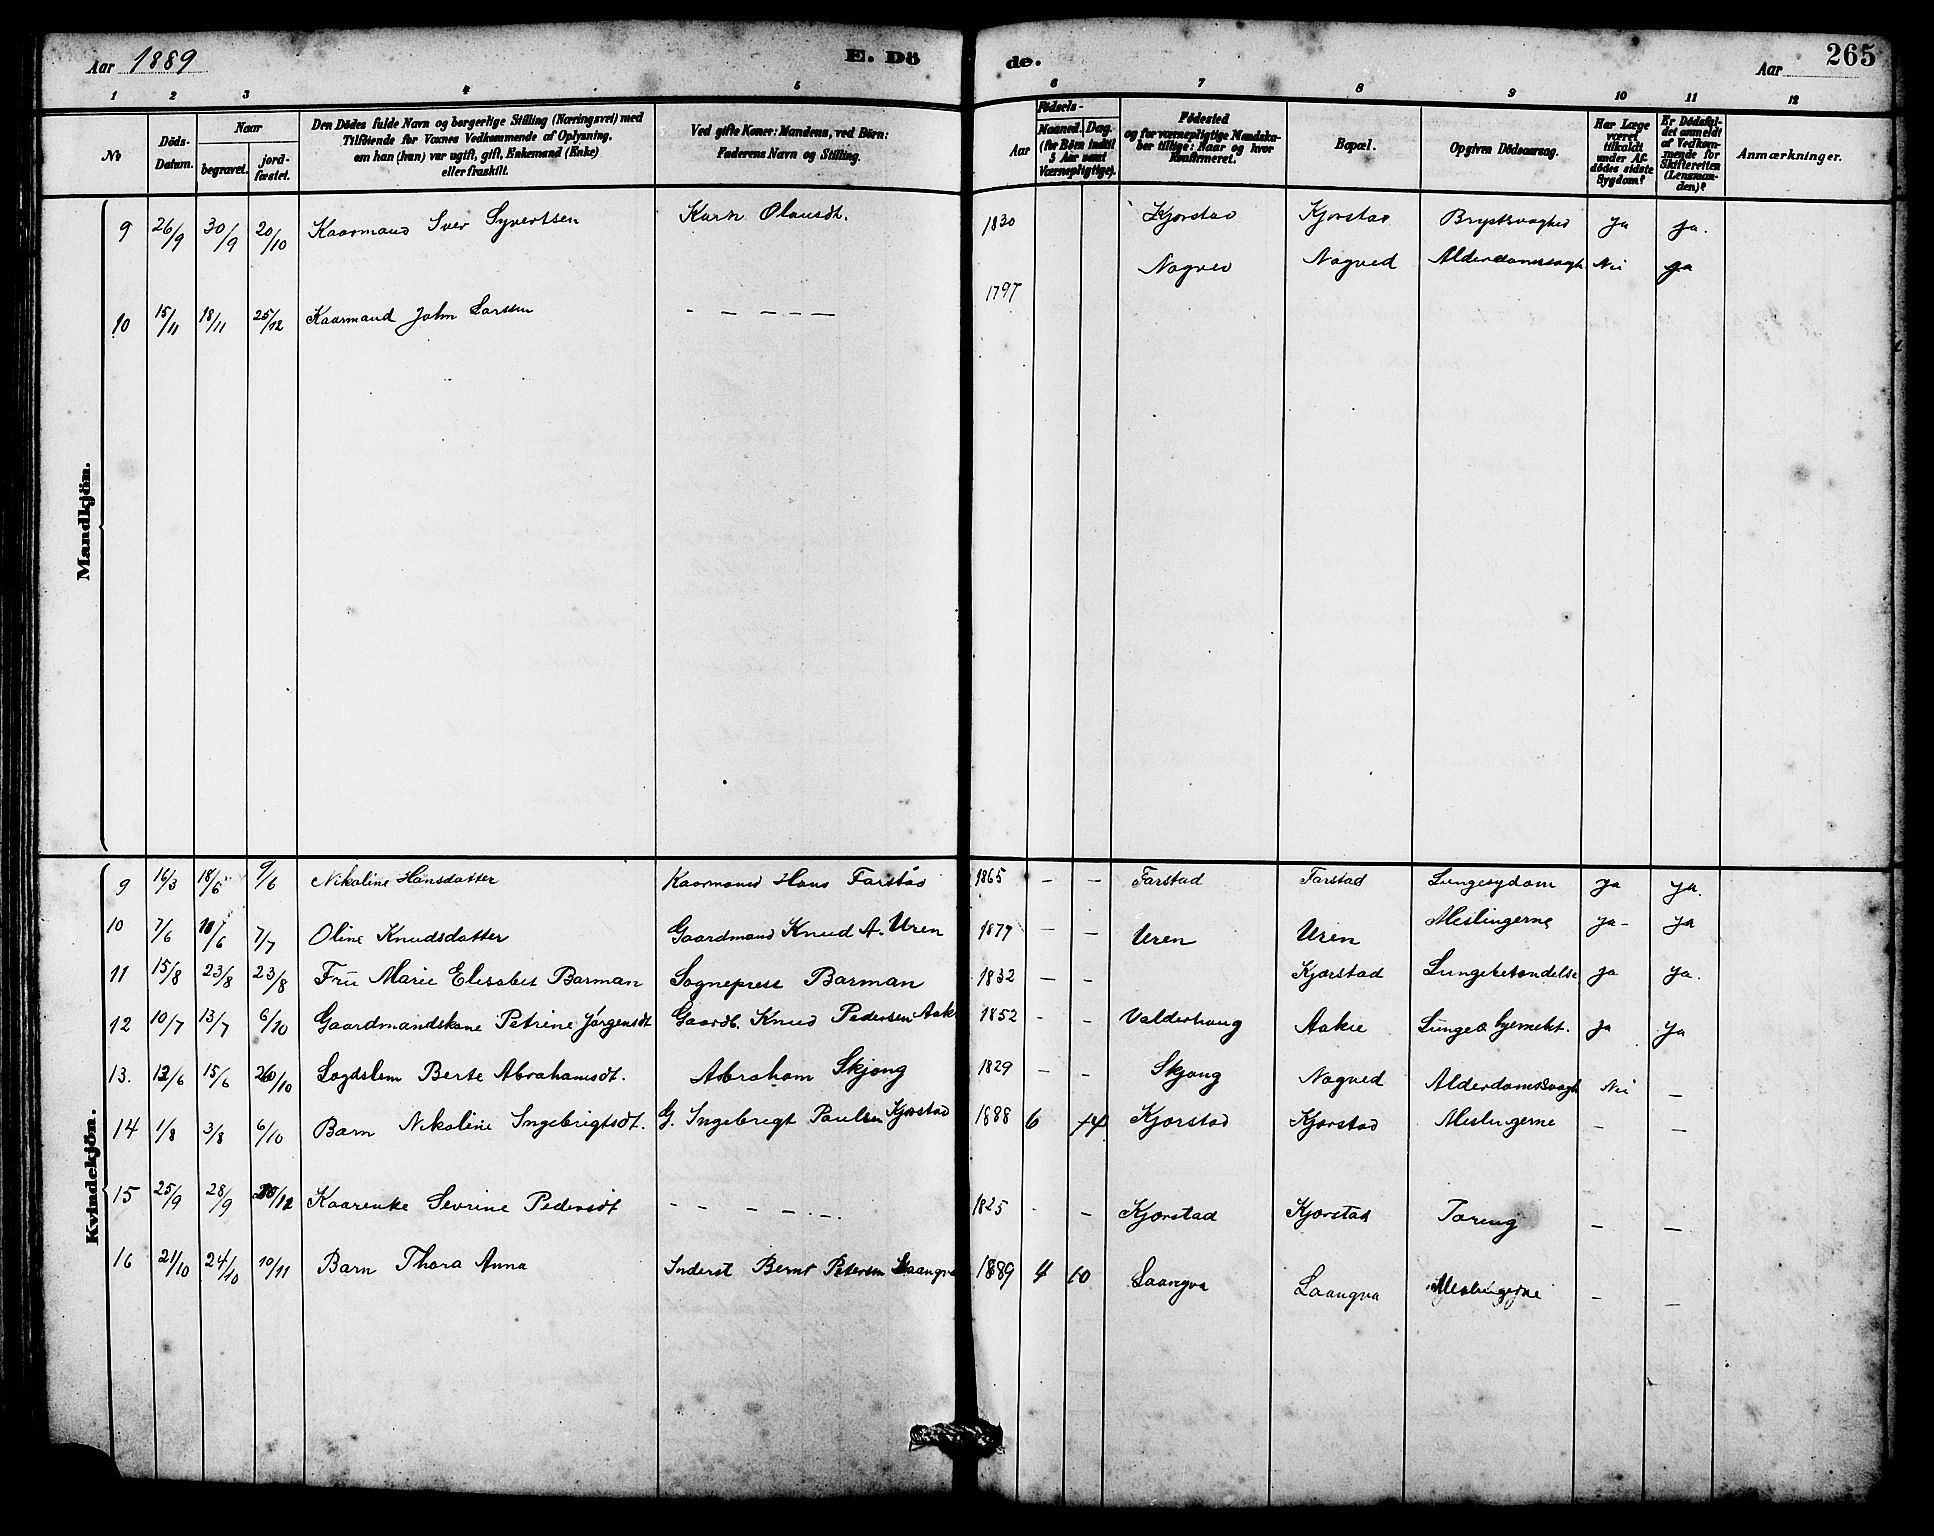 Aar 1889 E. Dö de. Aar 265
1 2 3 4 5 6 7 8 9 10 11 12
No Döds-Datum. Naar begravet. jordfæstet. Den Dödes fulde Navn og borgerlige Stilling (Næringsvei) med Tilföiende for Voxnes Vedkommende af Oplysning, om han (hun) var ugift, gift, Enkemand (Enke) eller fraskilt. Ved gifte Koner: Mandens, ved Börn: Faderens Navn og Stilling. Aar Födsels- Maaned. Dag. (for Børn indtil 5 Aar samt Værnepligtige). Födested og for værnepligtige Mandskaber tillige: Naar og hvor Konfirmeret. Bopæl. Opgiven Dödsaarsag. Har Læge været tilkaldt under Afdödes sidste Sygdom? Er Dödsfaldet anmeldt af Vedkommende for Skifteretten (Lensmanden)? Anmærkninger.
Mandkjön.
9 26/9 30/9 20/10 Kaarmand Iver Syvertsen Karn Olausdt. 1830 Kjørstad Kjørstad Brystsvaghed Ja Ja.
10 15/11 18/11 25/12 Kaarmand John Larsen - - - - - 1797 Nogved Nogved Alderdomssvagh. Nei Ja
Kvindekjön.
9 16/3 18/6 9/6 Nikoline Hansdatter Kaarmand Hans Farstad 1865 - - Farstad Farstad Lungesygdom Ja Ja.
10 7/6 10/6 7/7 Oline Knudsdatter Gaardmand Knud A. Uren 1879 - - Uren Uren Meslingerne Ja- Ja
11 15/8 23/8 23/8 Fru Marie Elisabet Barman Sogneprest Barman 1832 - - Kjørstad Lungebetændelse Ja Ja.
12 10/7 13/7 6/10 Gaardmandskone Petrine Jørgensdt Gaardb. Knud Pedersen Aak 1852 - - Valderhaug Aakre Lunge & Hjernebet. Ja Ja
13. 12/6 15/6 20/10 Lægdslem Berte Abrahamsdt. Abraham Skjong 1829 - - Skjong Nogved Alderdomssvagh Nei -
14 1/8 3/8 6/10 Barn Nikoline Ingebrigtsdt. G. Ingebrigt Paulsen Kjørstad 1888 6 14. Kjørstad Kjørstad Meslingerne - -
15 25/9 28/9 /12 Kaarenke Sevrine Pedersdt - - - - - 1825 - - Kjørstad Kjørstad Tæring - -
16 21/10 24/10 10/11 Barn Thora Anna Inderst Bernt Petersen Laangva 1889 4 10 Laangva Laangva Meslingerne - -